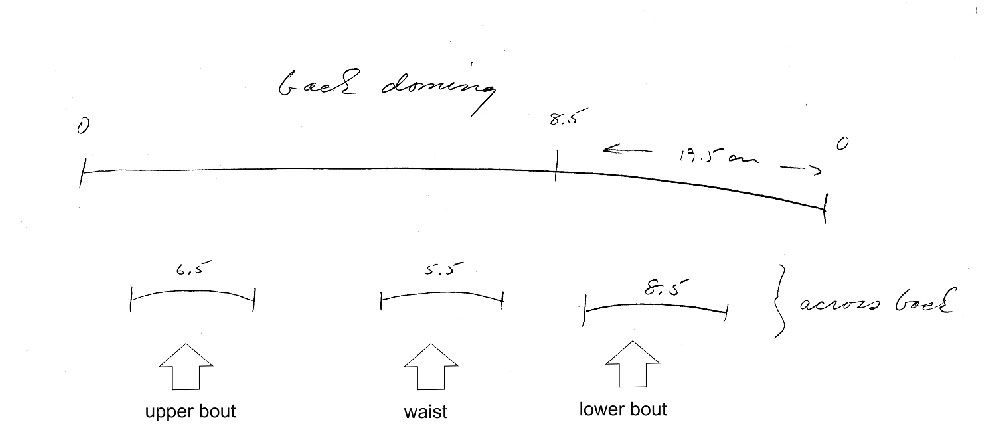 back doming
0
8.5
19.5 cm
0
6.5
5.5
8.5
across back
upper bout
waist
lower bout